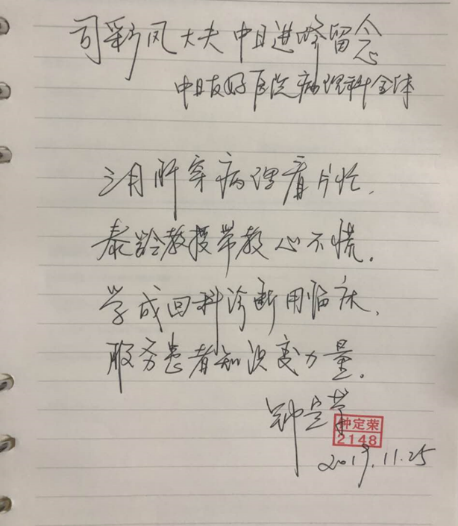 司彩凤大夫中日进修留念
中日友好医院病理科全体
三月肝穿病理看片忙，
泰龄教授带教心不慌。
学成回科诊断用临床，
服务患者知识变力量。
钟定荣
钟定荣
2148
2017.11.25